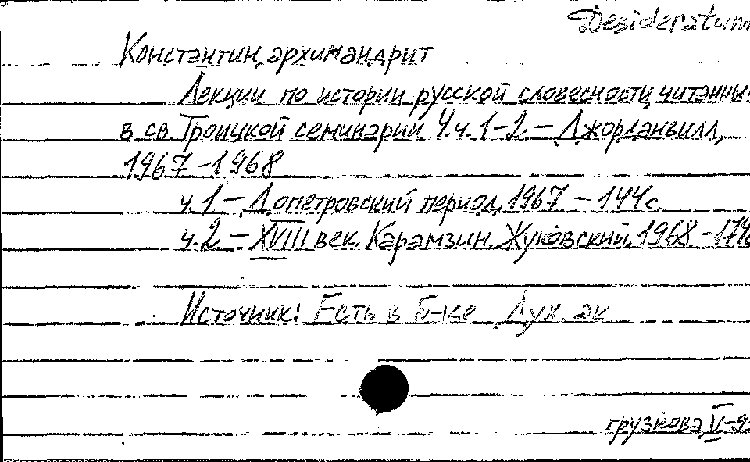 Desideratum
Константин, архимандрит
Лекции по истории русской словесности, читанные
в св. Троицкой семинарии Ч.ч. 1-2. – Джорданвилл,
1967-1968
ч. 1 – Допетровский период, 1967 – 144с.
ч. 2 – XVIII век. Карамзин. Жуковский, 1968 –
Источник: Есть в б-ке Дух. ак
грузнова, V-9